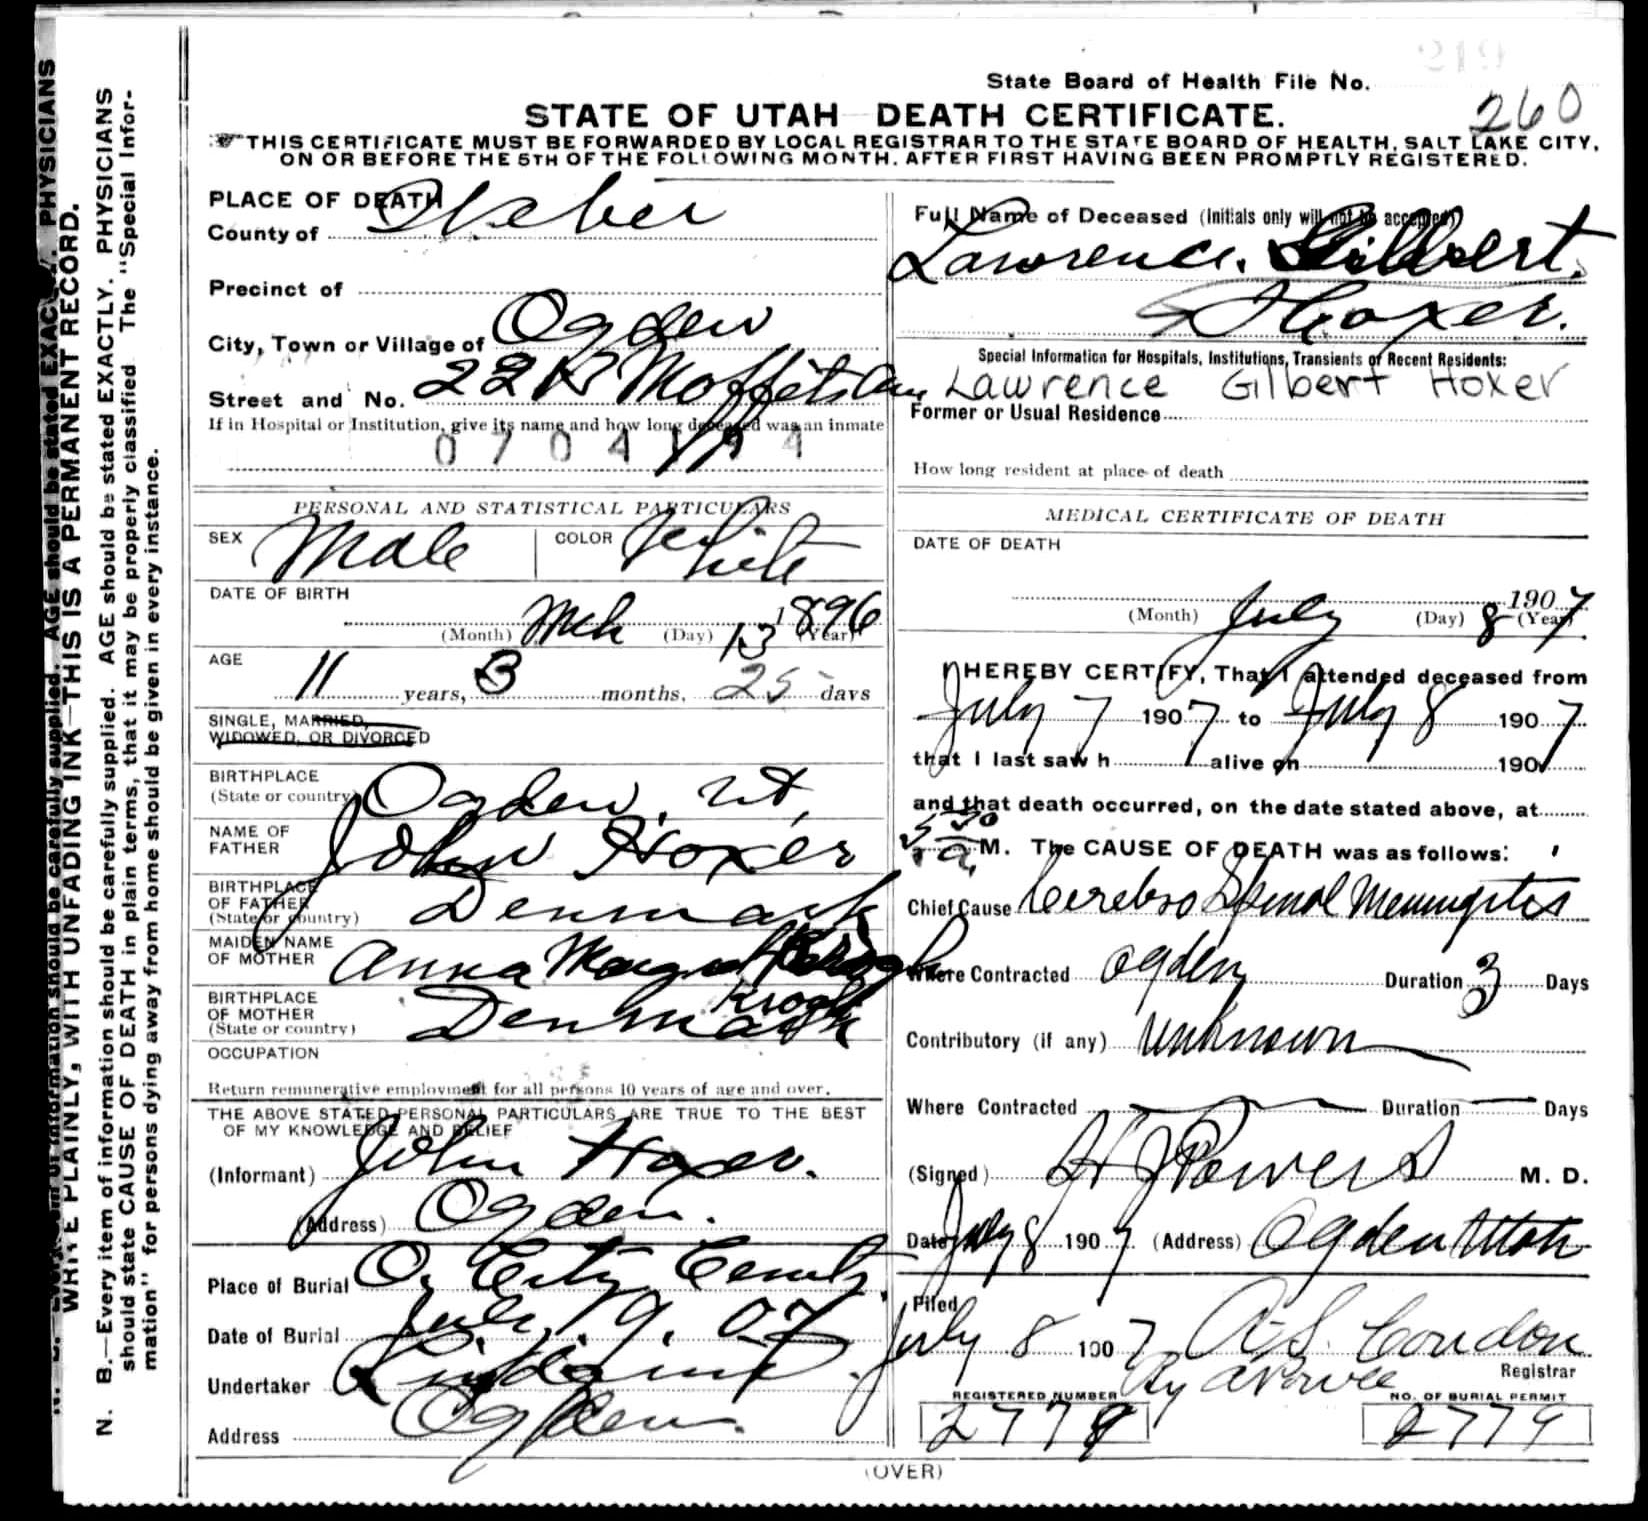 219
State Board of Health File No.
260
STATE OF UTAH—DEATH CERTIFICATE.
THIS CERTIFICATE MUST BE FORWARDED BY LOCAL REGISTRAR TO THE STATE BOARD OF HEALTH, SALT LAKE CITY,
ON OR BEFORE THE 5TH OF THE FOLLOWING MONTH, AFTER FIRST HAVING BEEN PROMPTLY REGISTERED.
PLACE OF DEATH
County of Weber
Precinct of
City, Town or Village of Ogden
Street and No. Moffets Av
If in Hospital or Institution, give its name and how long deceased was an inmate
PERSONAL AND STATISTICAL PARTICULARS
SEX Male COLOR White
DATE OF BIRTH
(Month) Mch (Day) 13 1896 (Year)
AGE
11 years, 3 months, 25 days
SINGLE, MARRIED,
WIDOWED, OR DIVORCED
BIRTHPLACE
(State or country) Ogden, Ut,
NAME OF
FATHER John Hoxer
BIRTHPLACE
OF FATHER
(State or country) Denmark
MAIDEN NAME
OF MOTHER Anna Krogh
BIRTHPLACE
OF MOTHER Krogh
(State or country) Denmark
OCCUPATION
Return remunerative employment for all persons 10 years of age and over.
THE ABOVE STATED PERSONAL PARTICULARS ARE TRUE TO THE BEST
OF MY KNOWLEDGE AND BELIEF
(Informant) John Hoxer.
(Address) Ogden.
Place of Burial O. City Cemty
Date of Burial July. 9. 07
Undertaker
Address Ogden.
Full Name of Deceased (Initials only will not be accepted)
Lawrence. Gilbert.
Hoxer.
Special Information for Hospitals, Institutions, Transients or Recent Residents:
Lawrence Gilbert Hoxer
Former or Usual Residence
How long resident at place of death
MEDICAL CERTIFICATE OF DEATH
DATE OF DEATH
1907
(Month) July (Day) 8 (Year)
I HEREBY CERTIFY, That I attended deceased from
July 7 1907 to July 8 1907
that I last saw h alive on 190
and that death occurred, on the date stated above, at
a M. The CAUSE OF DEATH was as follows:
Chief Cause Cerebro Spinal Meningitis
Where Contracted Ogden Duration 3 Days
Contributory (if any) Unknown
Where Contracted Duration Days
(Signed) H J Powers M. D.
Date July 8 1907 (Address) Ogden Utah
Filed
July 8 1907 A. S. Condon
By Registrar
REGISTERED NUMBER NO. OF BURIAL PERMIT
2779 2779
(OVER)
N. B.—Every item of information should be carefully supplied. AGE should be stated EXACTLY. PHYSICIANS
WRITE PLAINLY, WITH UNFADING INK—THIS IS A PERMANENT RECORD.
N. B.—Every item of information should be carefully supplied. AGE should be stated EXACTLY. PHYSICIANS
should state CAUSE OF DEATH in plain terms, that it may be properly classified. The "Special Infor-
mation" for persons dying away from home should be given in every instance.